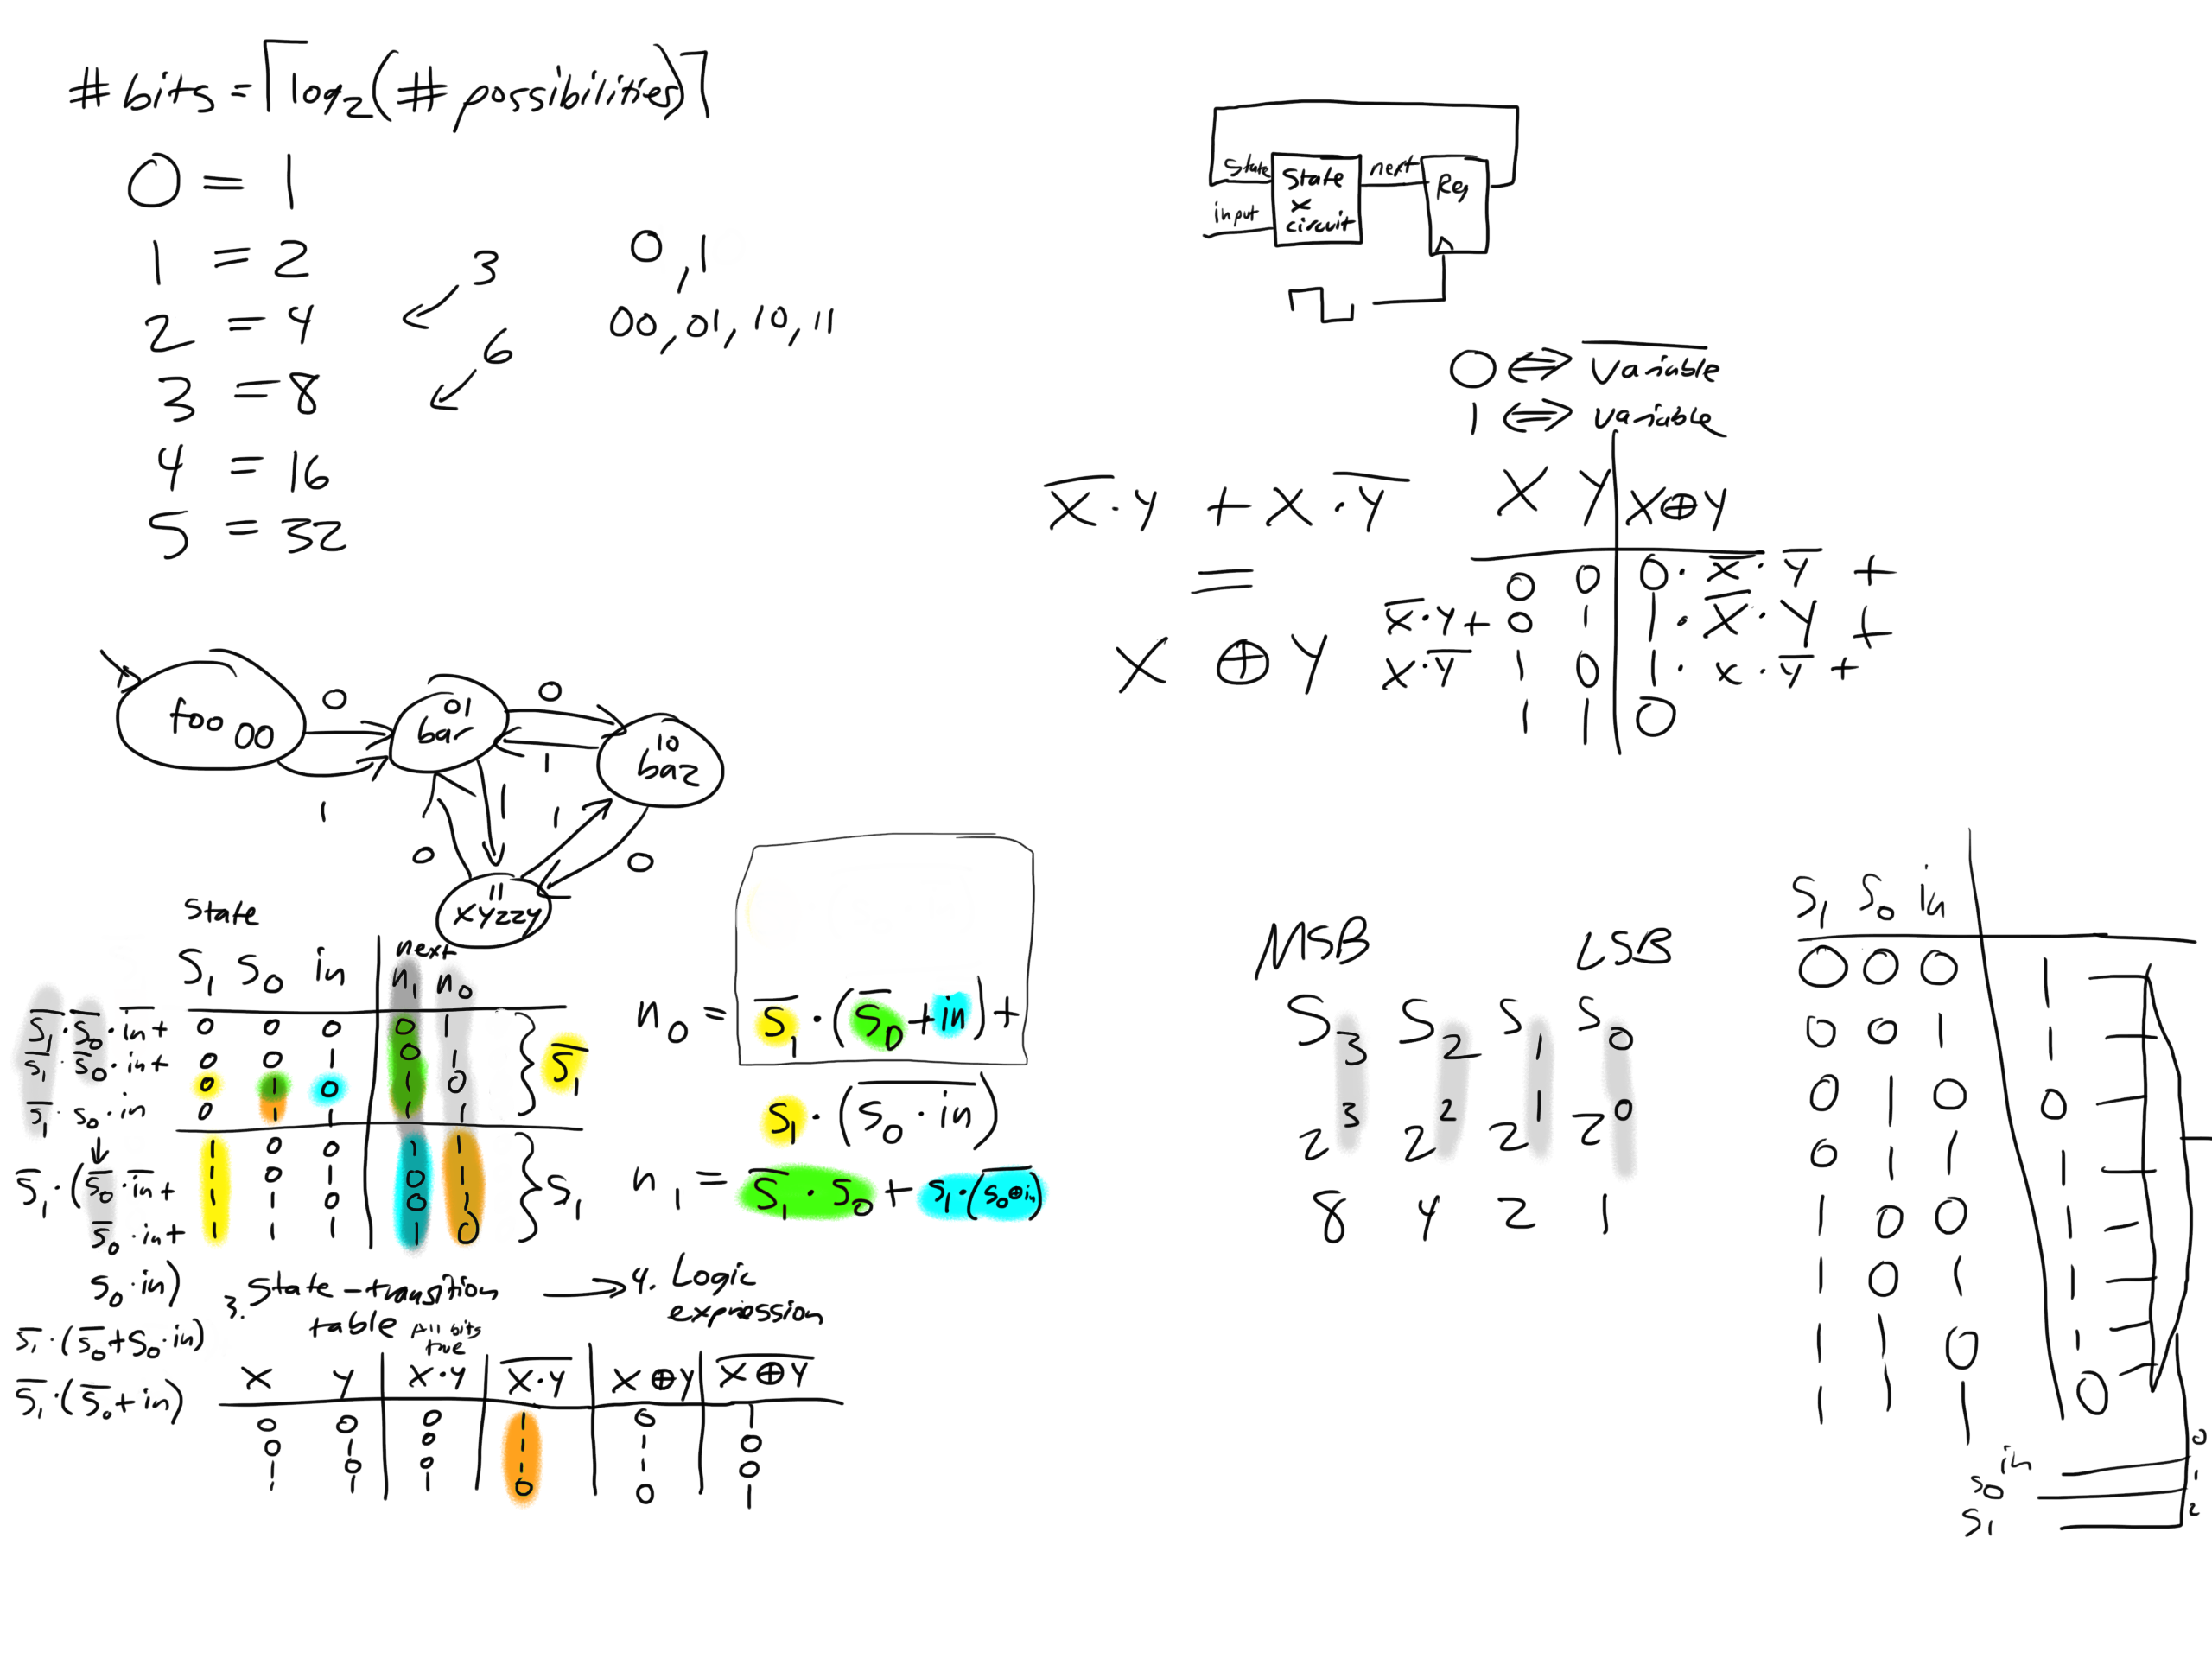 # bits = ⌈log₂(# possibilities)⌉
0 = 1
1 = 2
2 = 4
3 = 8
4 = 16
5 = 32
3
6
0, 1
00, 01, 10, 11
state
input
State
x
circuit
next
Reg
0 ⇔ V̅a̅r̅i̅a̅b̅l̅e̅
1 ⇔ variable
X̅·Y + X·Y̅
=
X ⊕ Y
X Y X⊕Y
0 0 0·X̅·Y̅ +
X̅·Y+ 0 1 1·X̅·Y +
X·Y̅ 1 0 1·x·Y̅ +
1 1 0
foo 00
0
1
01
bar
0
1
10
baz
1
1
0
0
11
xyzzy
State
next
S₁ S₀ in n₁ n₀
S̅₁·S̅₀·i̅n̅+ 0 0 0 0 1
S̅₁·S̅₀·in+ 0 0 1 0 1
0 1 0 1 0
S̅₁·S₀·in 0 1 1 1 1
S̅₁
1 0 0 1 1
S̅₁·(S̅₀·i̅n̅+ 1 0 1 0 1
1 1 0 0 1
S̅₀·in+ 1 1 1 1 0
S₁
S₀·in)
S̅₁·(S̅₀+S₀·in)
S̅₁·(S̅₀+in)
n₀ = S̅₁·(S̅₀+in)+
S₁·(S̅₀̅ ̅·̅ ̅i̅n̅)
n₁ = S̅₁·S₀ + S₁·(S̅₀̅⊕̅i̅n̅)
3. State-transition table → 4. Logic expression
All bits
true
X Y X·Y X̅·̅Y̅ X⊕Y X̅⊕̅Y̅
0 0 0 1 0 1
0 1 0 1 1 0
1 0 0 1 1 0
1 1 1 0 0 1
MSB LSB
S₃ S₂ S₁ S₀
2³ 2² 2¹ 2⁰
8 4 2 1
S₁ S₀ in
0 0 0 1
0 0 1 1
0 1 0 0
0 1 1 1
1 0 0 1
1 0 1 1
1 1 0 1
1 1 1 0
in 0
S₀ 1
S₁ 2